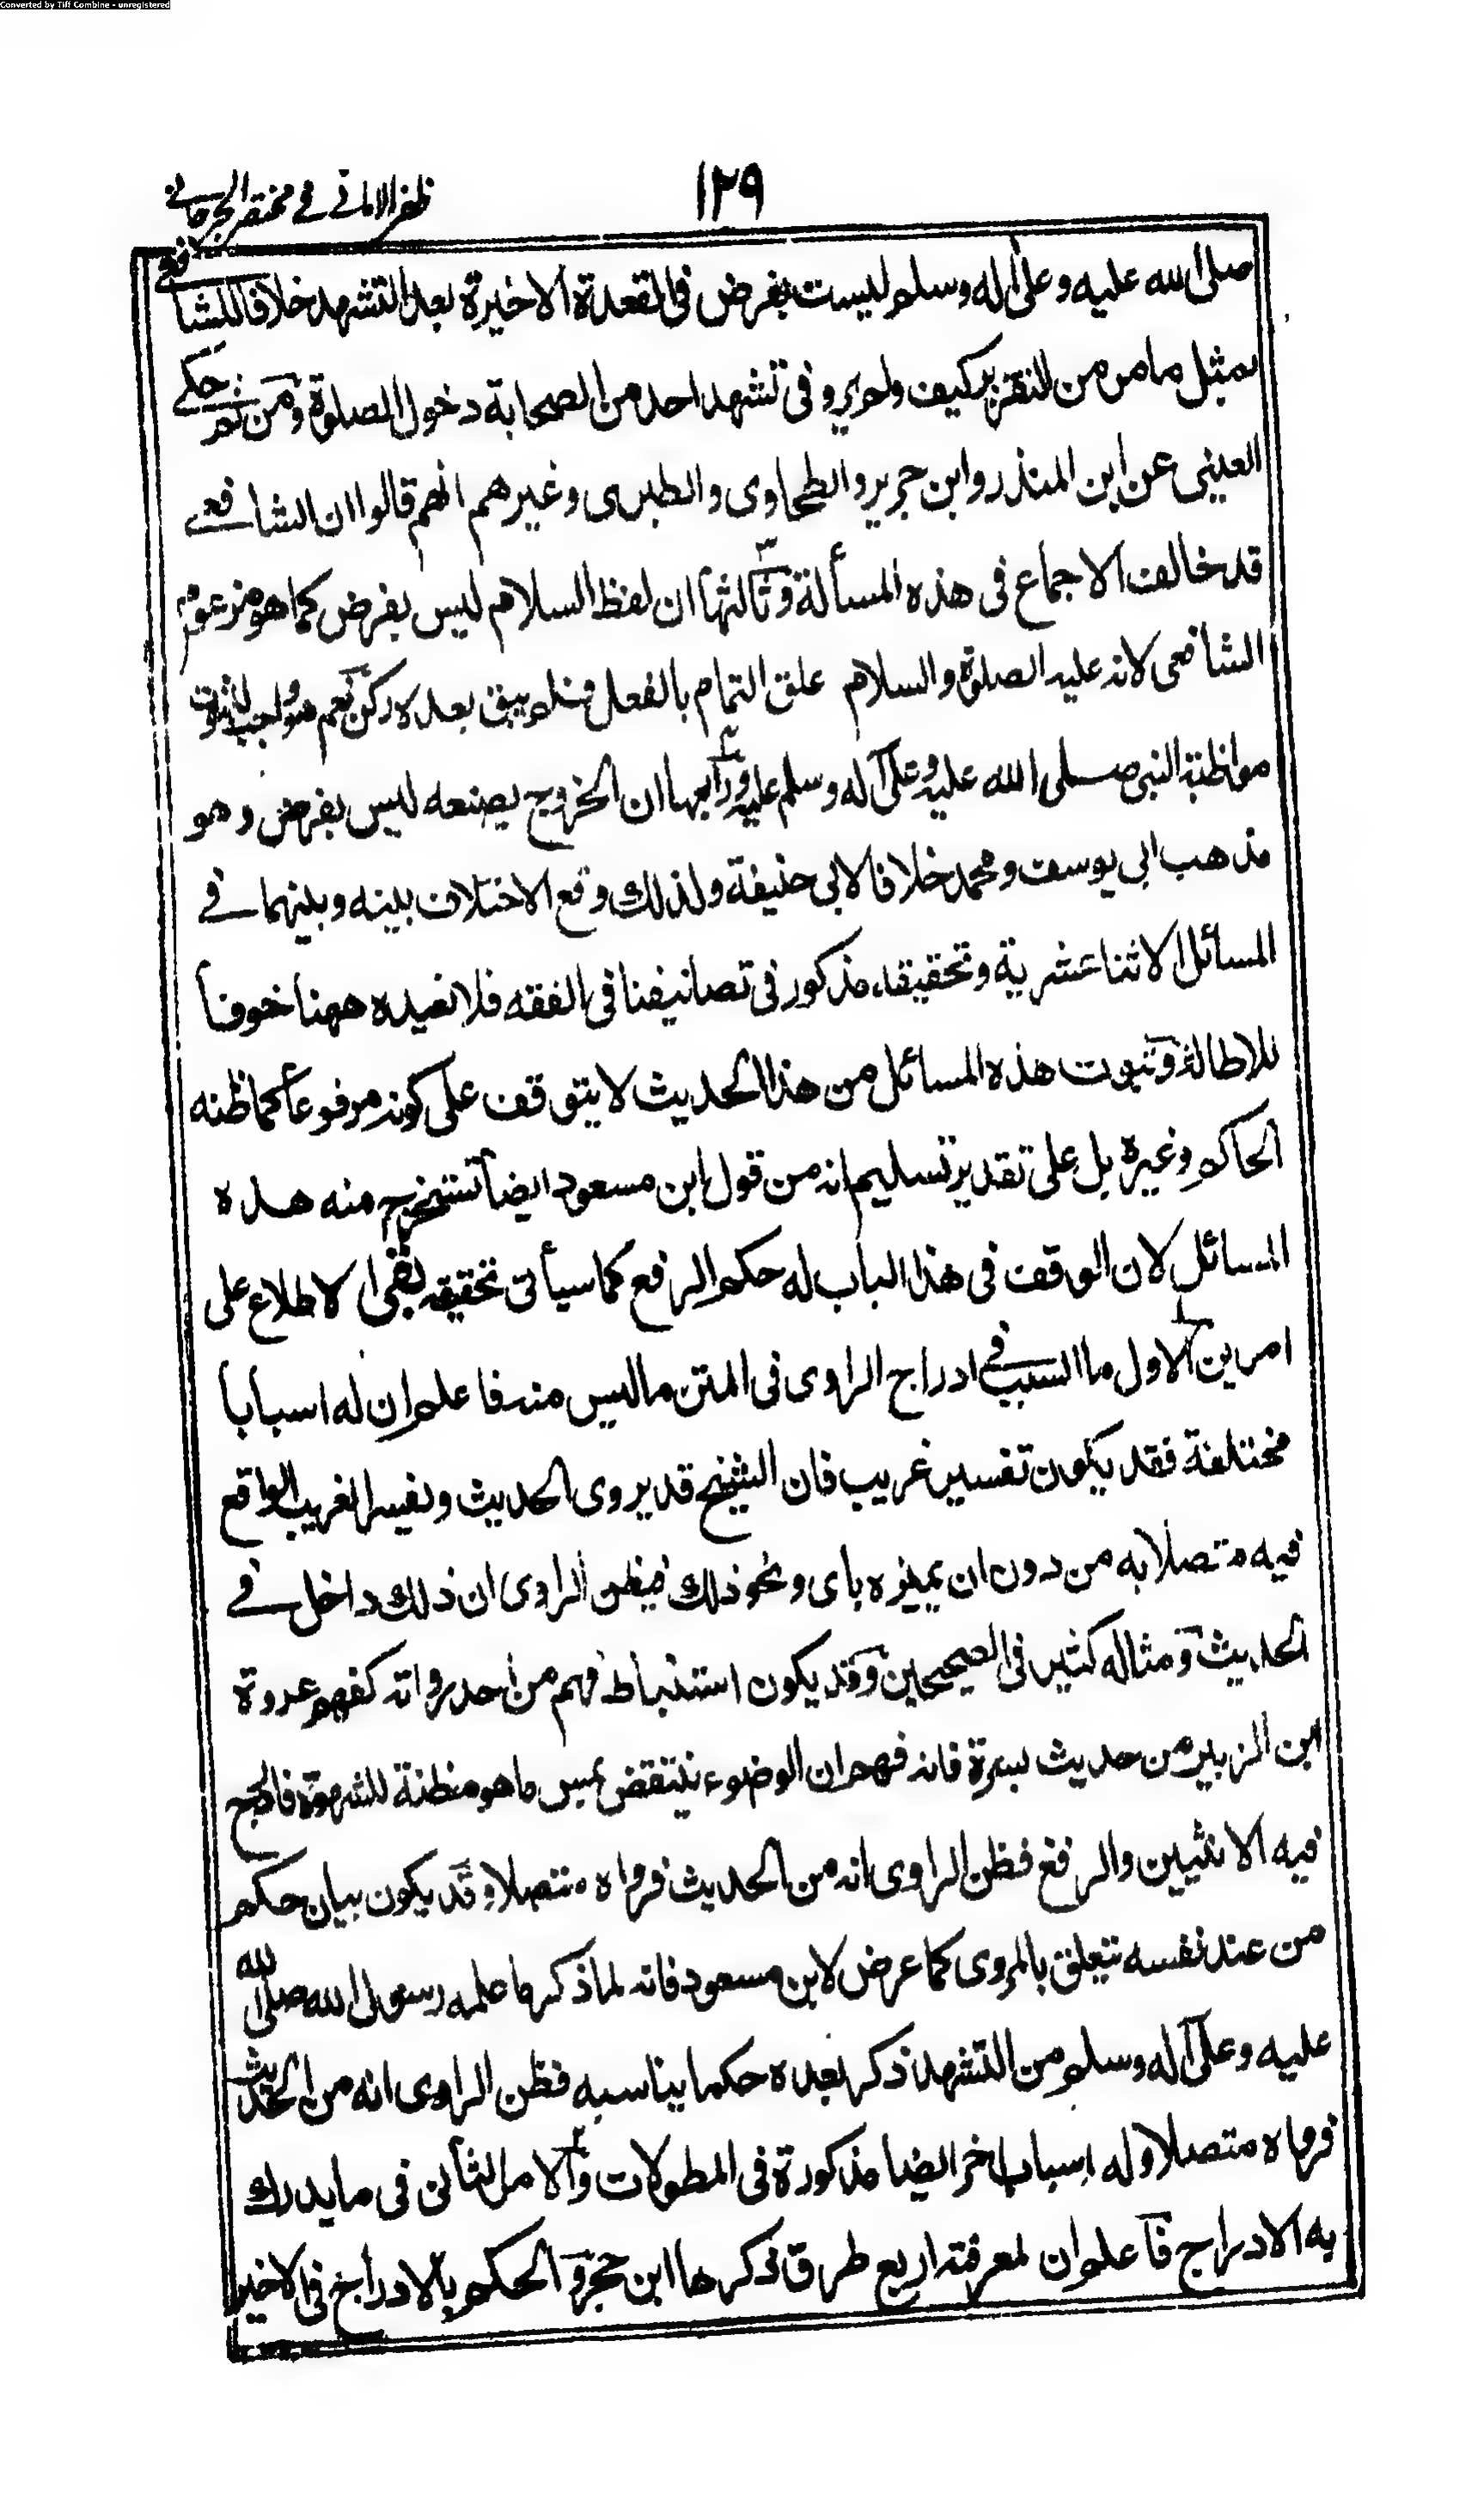 Converted by Tiff Combine - unregistered
١٢٩
ظفر الاماني في مختصر الجرجاني
صلى الله عليه وعلى آله وسلم ليست بفرض في القعدة الاخيرة بعد التشهد خلافا للشافعي
بمثل ما مر من التقرير كيف ولم يرو في تشهد احد من الصحابة دخول الصلوة ومن ثم حكى
العيني عن ابن المنذر وابن جرير والطحاوى والطبرى وغيرهم انهم قالوا ان الشافعي
قد خالف الاجماع فى هذه المسألة وثالثها ان لفظ السلام ليس بفرض كما هو مزعوم
الشافعى لانه عليه الصلوة والسلام علق التمام بالفعل فلم يبق بعده ركن نعم هو واجب لثبوت
مواظبة النبى صلى الله عليه وعلى آله وسلم عليه ورابعها ان الخروج بصنعه ليس بفرض وهو
مذهب ابى يوسف ومحمد خلافا لابى حنيفة ولذلك وقع الاختلاف بينه وبينهما في
المسائل الاثنا عشرية وتحقيقه مذكور فى تصانيفنا فى الفقه فلا نعيده ههنا خوفاً
للاطالة وثبوت هذه المسائل من هذا الحديث لا يتوقف على كونه مرفوعاً كما ظنه
الحاكم وغيره بل على تقدير تسليم انه من قول ابن مسعود ايضاً تستخرج منه هذه
المسائل لان الوقف فى هذا الباب له حكم الرفع كما سيأتى تحقيقه بقى الاطلاع على
امرين الاول ما السبب في ادراج الراوى فى المتن ما ليس منه فاعلم ان له اسباباً
مختلفة فقد يكون تفسير غريب فان الشيخ قد يروى الحديث ويفسر الغريب الواقع
فيه متصلا به من دون ان يميزه باى ونحو ذلك فيظن الراوى ان ذلك داخل في
الحديث ومثاله كثير فى الصحيحين وقد يكون استنباط فهم من احد رواته كفهم عروة
ابن الزبير من حديث بسرة فانه فهم ان الوضوء ينتقض بمس ما هو مظنة للشهوة فادرج
فيه الانثيين والرفغ فظن الراوى انه من الحديث فرواه متصلا وقد يكون بيان حكم
من عند نفسه يتعلق بالمروى كما عرض لابن مسعود فانه لما ذكر ما علمه رسول الله صلى الله
عليه وعلى آله وسلم من التشهد ذكر بعده حكما يناسبه فظن الراوى انه من الحديث
فرواه متصلا وله اسباب اخر ايضا مذكورة فى المطولات والامر الثانى فى ما يدرك
به الادراج فاعلم ان لمعرفته اربع طرق ذكرها ابن حجر والحكم بالادراج فى الاخير